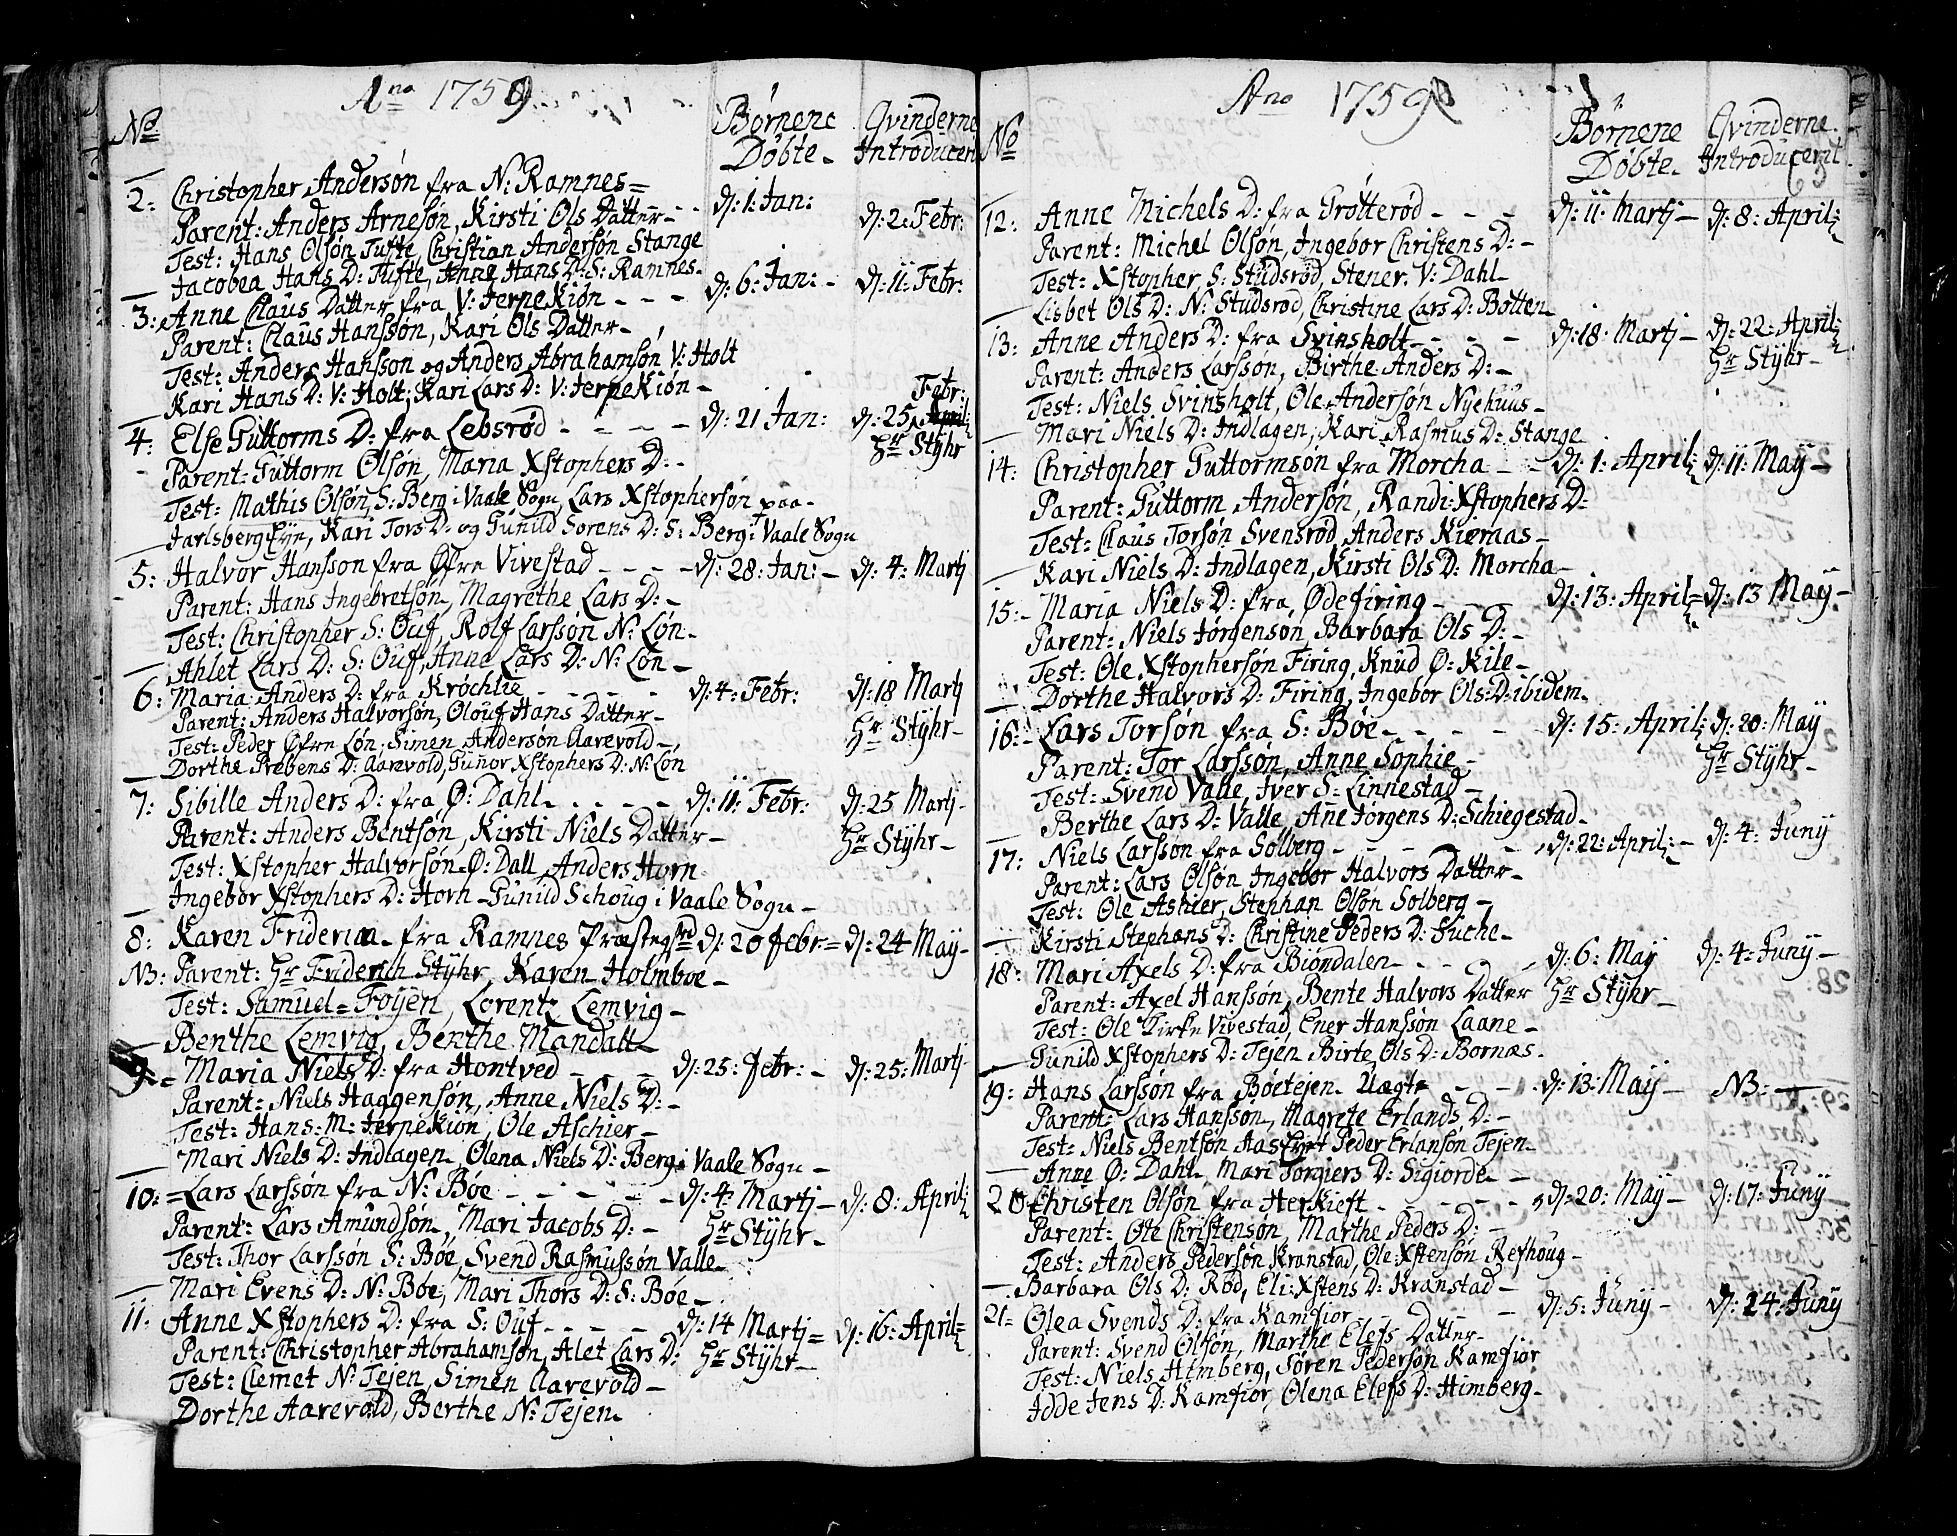 Ano 1759
No Børnene Døbte Qvinderne Introducert
2: Christopher Andersøn fra N: Ramnes = d: 1: Jan: d: 2: Febr:
Parent: Anders Arnesøn, Kirsti Ols Datter
Test: Hans Olsøn Tufte, Christian Andersøn Stange
Jacobea Hans D: Tufte, Anne Hans D: S: Ramnes
3: Anne Claus Datter fra V: Jerpekiøn d: 6: Jan: d: 11: Febr:
Parent: Claus Hansson, Kari Ols Datter
Test: Anders Hansson og Anders Abrahamsøn V: Holt
Kari Hans D: V: Holt, Kari Lars D: V: Jerpekiøn
4: Else Guttorms D: fra Lebsrød d: 21 Jan: d: 25 Febr: Hr Stÿhr
Parent: Guttorm Olsøn, Maria Xstophers D:
Test: Mathis Olsøn S: Berg i Vaale Sogn, Lars Xstophersøn paa
Jarlsberg Eye, Kari Tors D: og Gunild Sorens D: S: Berg i Vaale Sogn
5: Halvor Hansson fra Øfre Vivestad d: 28: Jan: d: 4: Martj
Parent: Hans Ingebretsøn, Magrethe Lars D:
Test: Christopher S: Ouf, Rolf Larsson N: Løn
Ahlet Lars D: S: Ouf, Anne Lars D: N: Løn
6: Maria Anders D: fra Krøchlie d: 4: Febr: d: 18 Martj Hr Stÿhr
Parent: Anders Halvorsøn, Olouf Hans Datter
Test: Peder Øfre Løn, Simen Andersøn Aarevold
Dorthe Prebens D: Aarevold, Gunor Xstophers D: N: Løn
7: Sibille Anders D: fra Ø: Dahl d: 11: Febr: d: 25 Martj Hr Stÿhr
Parent: Anders Bentsøn, Kirsti Niels Datter
Test: Xstopher Halvorsøn Ø: Dall, Anders Horn
Ingebor Xstophers D: Horn Gunild Schoug i Vaale Sogn
8: Karen Friderica fra Ramnes Præstegrd d: 20 Febr: d: 24 May
NB: Parent: Hr Friderich Stÿhr, Karen Holmboe
Test: Samuel = Foÿen, Lorentz Lemvig
Benthe Lemvig, Benthe Mandall
9. Maria Niels D: fra Hontved d: 25: Febr: d: 25: Martj
Parent: Niels Haggensøn, Anne Niels D:
Test: Hans: M: Jerpekiøn, Ole Aschier
Mari Niels D: Indlagen, Olena Niels D: Berg i Vaale Sogn
10: Lars Larssøn fra N: Bøe d: 4: Martj Hr Stÿhr d: 8: April:
Parent: Lars Amundsøn, Mari Jacobs D:
Test: Thor Larssøn S: Bøe, Svend Rasmussøn Valle
Mari Evens D: N: Bøe, Mari Thors D: S: Bøe
11. Anne Xstophers D: fra S: Ouf d: 14 Martj Hr Stÿhr d: 16: April
Parent: Christopher Abrahamsøn, Alet Lars D:
Test: Clemet N: Tejen, Simen Aarevold
Dorthe Aarevold, Berthe N: Tejen
Ano 1759
No Børnene Døbte Qvinderne Introducerit
12: Anne Michels D: fra Grøtterød d: 11: Martj d: 8: April:
Parent: Michel Olsøn, Ingebor Christens D:
Test: Xstopher S: Studsrød, Stener V: Dahl
Lisbet Ols D: N: Studsrød, Christine Lars D: Botten
13: Anne Anders D: fra Svinsholt d: 18: Martj d: 22: April: Hr Stÿhr
Parent: Anders Larssøn, Birthe Anders D:
Test: Niels Svinsholt, Ole Andersøn Nyehuus
Mari Niels D: Indlagen, Kari Rasmus D: Stange
14: Christopher Guttormsøn fra Morcha d: 1: April: d: 11: May
Parent: Guttorm Andersøn, Randi Xstophers D:
Test: Claus Torsøn Svensrød, Anders Kiernas
Kari Niels D: Indlagen, Kirsti Ols D: Morcha
15: Maria Niels D: fra Ødefiring d: 13: April d: 13 May
Parent: Niels Jørgensøn, Barbara Ols D:
Test: Ole Xstophersøn Firing, Knud Ø: Kile
Dorthe Halvors D: Firing, Ingebor Ols D: ibidem
16: Lars Torsøn fra S: Bøe d: 15: April: d: 20: May Hr Stÿhr
Parent: Tor Larssøn, Anne Sophie
Test: Svend Valle, Iver S: Linnestad
Berthe Lars D: Valle, Ane Jørgens D: Schiegestad
17: Niels Larssøn fra Solberg d: 22: April: d: 4: Juny
Parent: Lars Olsøn Ingebor Halvors Datter
Test: Ole Ashier, Stephan Olsøn Solberg
Kirsti Stephans D: Christine Peders D: Fuche
18: Mari Axels D: fra Biondalen d: 6: May Hr Stÿhr d: 4: Juny
Parent: Axel Hanssøn, Bente Halvors Datter
Test: Ole Kirke Vivestad, Ener Hanssøn Laane
Gunild Xstophers D: Tejen Birte Ols D: Bornæs
19: Hans Larssøn fra Bøetejen Uægte d: 13: May NB:
Parent: Lars Hanssøn, Magrete Erlands D:
Test: Niels Bentsøn Aas Eyet Peder Erlansøn Tejen
Anne Ø: Dahl, Mari Torgiers D: Sigiorde
20 Christen Olsøn fra Herkieft d: 20: May d: 17: Juny
Parent: Ole Christensøn, Marthe Peders D:
Test: Anders Pedersøn Kranstad, Ole Xstensøn Refhoug
Barbara Ols D: Rød, Eli Xstens D: Kranstad
21 Olea Svends D: fra Kamfior d: 5: Juny d: 24: Juny
Parent: Svend Olsøn, Marthe Elefs Datter
Test: Niels Himberg, Søren Pedersøn Kamfior
Idde Jens D: Kamfior, Olena Elefs D: Himberg